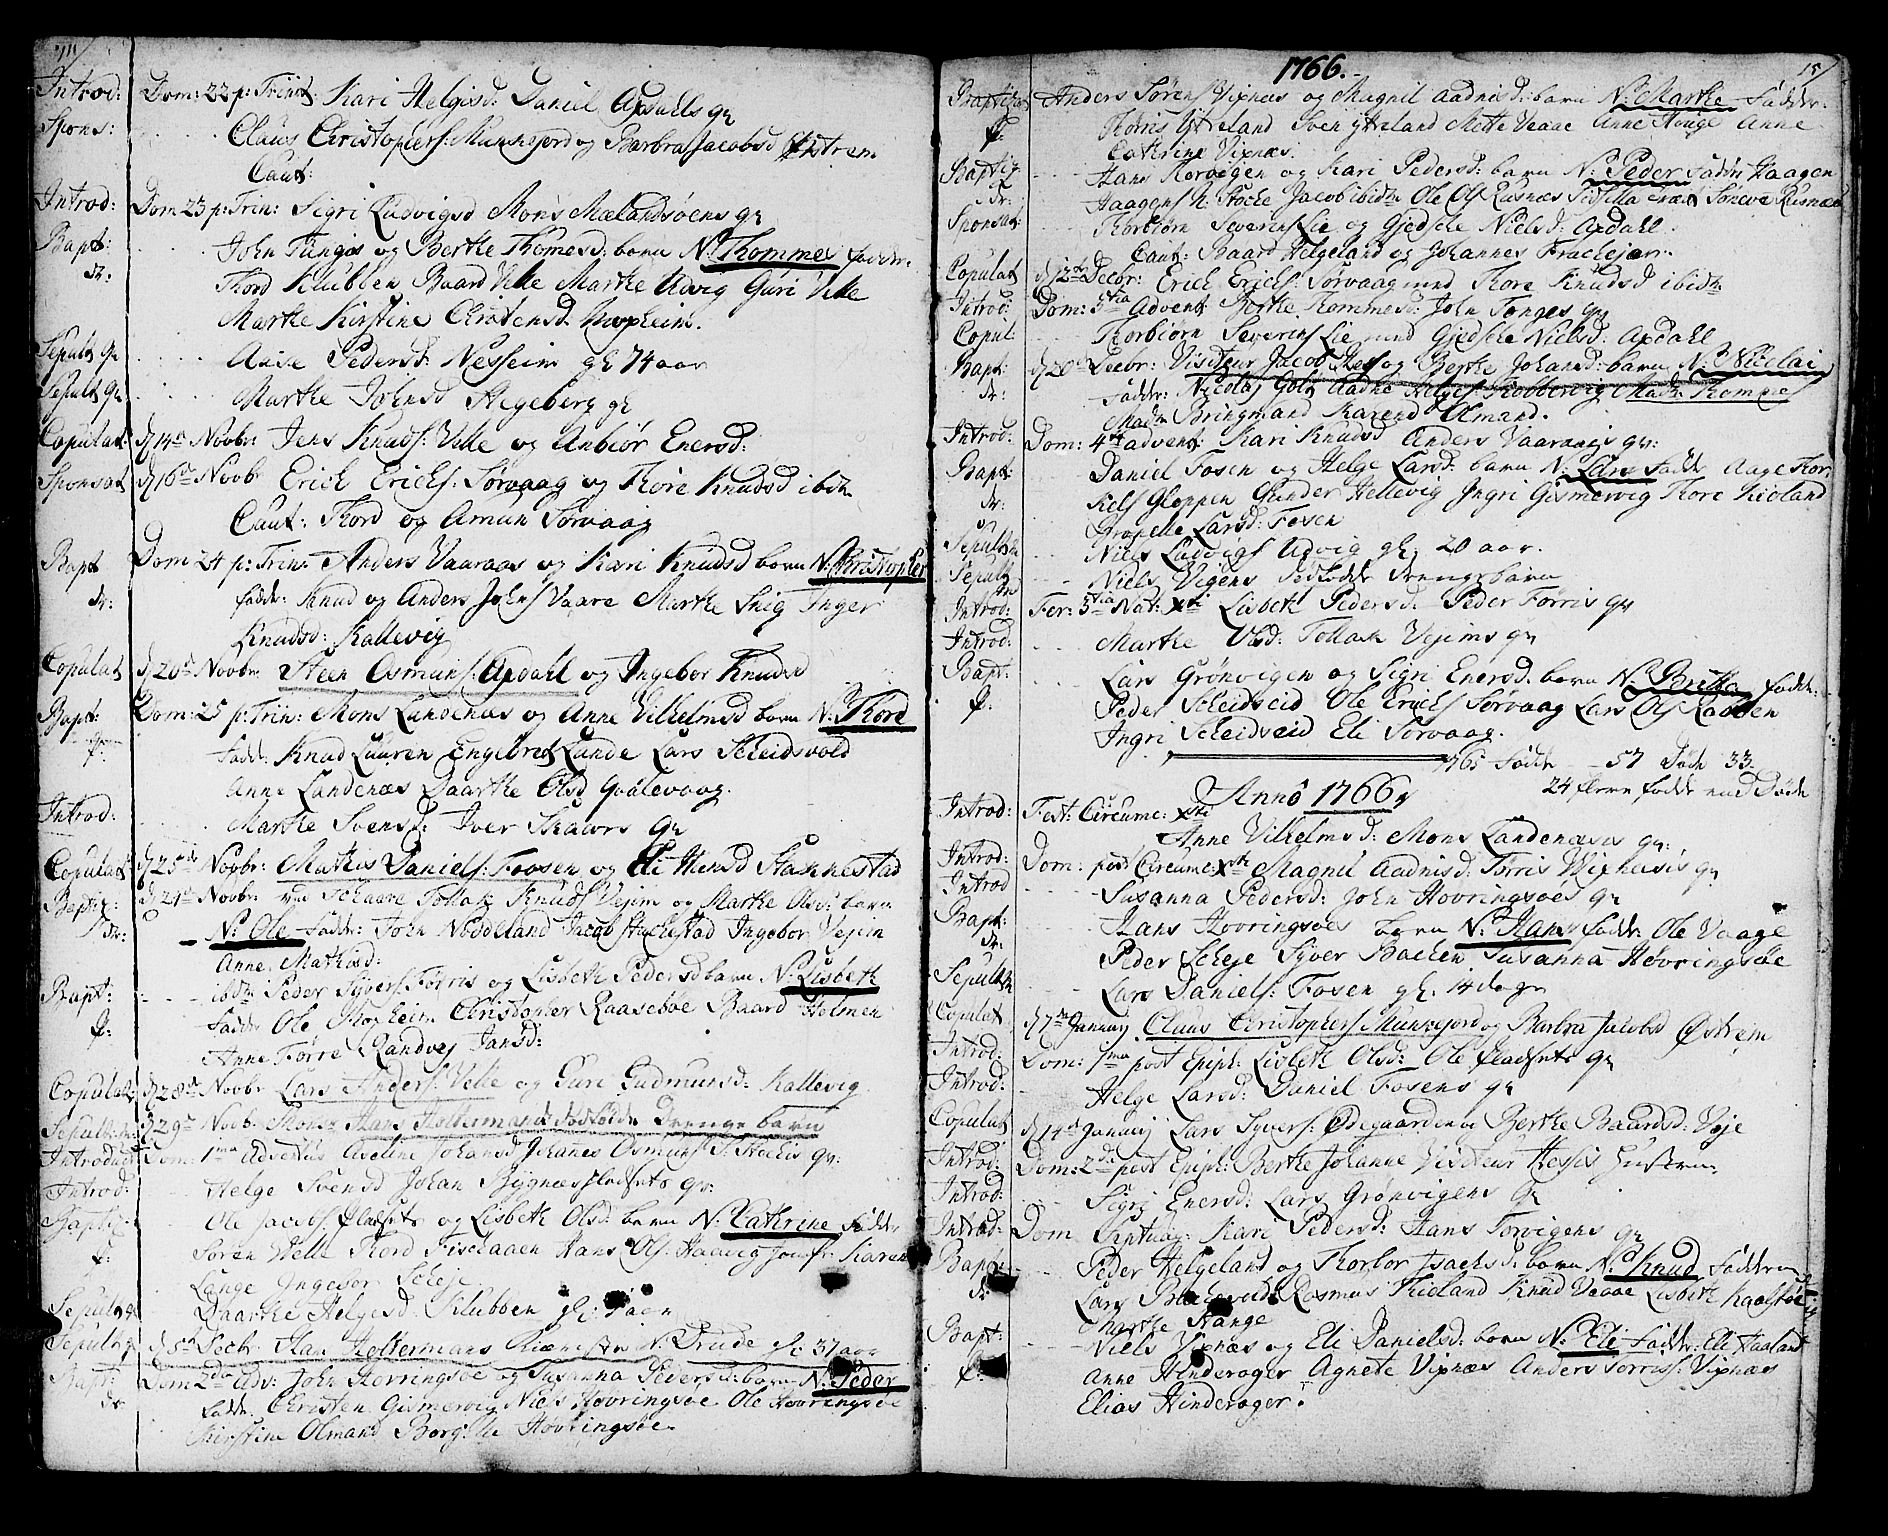 Introd: Dom: 22 p: Trinit: Kari Helgisd: Daniel Apdalls qv
Spons: Claus Christophers: Munkejord og Barbra Jacobsd Østrem
Caut:
Introd: Dom 23 p: Trin: Sigri Ludvigsd Mons Mælandsøens qv
Bapt: John Tunges og Berthe Thomesd: barn N: Thommes fadder:
Thord Klubben Baard Velle Marthe Udvig Guri Velle
Marthe Kirstine Christensd Nopheim.
Sepult qv Aase Pedersd: Nesseim gl 74 aar
Sepult qv Marthe Johnsd Hegeberg gl
Copulat: d 14de Novbr Jens Knuds: Velle og Anbiør Enersd:
Sponsat d 16de Novbr Erich Erichs: Sørvaag og Thore Knudsd ibid
Caut: Thord og Amun Sørvaag
Bapt Dom 24 p: Trin: Anders Vaaraas og Kari Knudsd barn N: Christopher
fadder: Knud og Anders Johns Vaare Marthe Snig Inger
Knudsd: Kallevig
Copulat d 20de Novbr Steen Osmuns: Apdahl og Ingebor Knudsd
Bapt: Dom: 25 p: Trin: Mons Landenæs og Anne Vilhelmsd barn N: Thord
fadd: Knud Lauren Engebret Lunde Lars Scheidsvold
Anne Landenæs Daarthe Olsd Qvalevaag.
Introd: Marthe Svensd: Iver Skaars qv
Copulat: d 23de Novbr: Mathis Daniels: Foosen og Eli Hansd Stannestad
Baptiz: d 24de Novbr: ved Schaare Tollak Knuds Vejim og Marthe Olsd: barn
N: Ole fadder: John Nøddeland Jacob Stuckestad Ingebor Vejem
Anne Mathisd:
Bapt: ibid: Peder Sjvers Førris og Lisbeth Pedersd barn N: Lisbeth
fadder Ole Nopheim Christopher Raasebøe Baard Holmen
Anne Førre Randvej Jansd:
Copulat: d 28de Novbr Lars Anders: Velle og Guri Gudmunsd: Kallevig
Sepult: d 29de Novb. Mons: Hans Holtermands dødfødde Drenge barn
Introduct Dom: 1ma Adventus Aseline Johansd Johanes Osmuns S: Stochis qv:
Introd: Helge Svensd Johan Bygnæs qv:
Baptiz: Ole Jacobs: og Lisbeth Olsd: barn N: Cathrine fadder
Søren Velle Thord Hans Ols: Haavig Jomfr: Karen
Lange Ingebor Scheje
Sepult qv Daarthe Helgesd Klubben gl: aar
Sepult qv d 5te Decbr Han Holtermans N: Drude gl: 37 aar
Bapt: Dom 2da Adv: John Hovringsøe og Susanna Pedersd: barn N: Peder
fadd: Christen Gismervig Niels Hovringsøe Ole Hovringsøe
Kirstine Olmand Børgille Høvringsøe

1766.
15
Baptiz: Anders Sørens Vixnæs og Magnil Aadnisd: barn N: Marthe fadder:
Thorris Ytreland Sven Ytreland Mette Veaae Anne Houge Anne
Cathrine Vixnæs.
Baptiz Hans Korvigen og Kari Pedersd: barn N: Peder fadder Haagen
Haagens N: Stocke Jacob ibid: Ole Ols Rusnes Sidsella Sønneve Rusnæs
Sponsat: Thorbiørn Severins Lie og Gjedsche Nielsd: Apdahl.
Caut: Baard Helgeland og Johannes Frackejær.
Copulat d 12te Decbr: Erich Erichs: Sørvaag med Thore Knudsd ibid:
Introd: Dom: 3tia Advent: Berthe Thommesd: John Tonges qv
Copul Thorbiørn Severins Lie med Gjedsche Nielsd: Apdahl
Bapt: d 20de Decbr: Visiteur Jacob Hess og Berthe Johansd: barn N: Nicolai
fadder: Nicolay Golz Aadne Helges: Tobbervig Mad: Thommes
Mad: Bringmand Karend Olmand.
Introd: Dom: 4ta advent: Kari Knudsd Anders Vaaraagis qv:
Bapt: Daniel Fosen og Helge Larsd: barn N: Lars fadder Aage Thor-
kels Gloppen Gunder Hellevig Ingri Gismervig Thore Kioland
Larsd: Fosen
Sepult: Niels Ludvigs Udvig gl: 20 aar.
Sepult Niels Vigens dødfødde drengebarn
Introd: Fer: 3tia Nat: Xsti Lisbeth Pedersd: Peder Førris qv
Introd: Marthe Olsd: Tollak Vejims qv
Bapt: Lars Grønvigen og Sigri Enersd: barn N: Brithe fadder:
Peder Scheidsveid Ole Erichs Sørvaag Lars Ols Ladden
Ingri Scheidsveid Eli Sørvaag.
1765 Fødde - - 57 Døde 33.
24 flere fødde end Døde
Anno 1766
Introd: Fest: Circumc: Xsti
Anne Vilhelmsd: Mons Landenæsis qv:
Introd: Dom: post Circumc: Xsti Magnil Aadnisd: Torris Wixnæsis qv
Introd Susanna Pedersd: John Hovringsøes qv
Bapt: Hans Hovringsøes barn N: Hans fadd: Ole Vaage
Peder Scheje Syver Backen Susanna Høvringsøe
Sepult Lars Daniels: Fosen gl. 14 dage
Copulat d 7de January Claus Christophers Munkejord og Barbra Jacobsd Østrem
Introd: Dom: 1ma post Epiph: Lisbeth Olsd: Ole qv
Introd: Helge Larsd: Daniel Fosens qv
Copulat d 14de January Lars Syvers: Ødegaarden og Berthe Baardsd: Veje
Introd: Dom: 2da post Epiph: Berthe Johanne Visiteur Hessis hustrue
Introd: Sigri Enersd: Lars Grønvigens qv
Introd: Dom Septuag: Kari Pedersd: Hans Torvigens qv
Bapt: Peder Helgeland og Thorbor Isachsd: barn N: Knud fadderne
Lars Rasmus Kioland Knud Veaae Lisbeth Kaalstøe
Marthe Hange
Bapt: Niels Vixnæs og Eli Danielsd: barn N: Eli fadder: Eli Haaland
Anne Hinderager Agnete Vixnæs Anders Torris: Vixnæs
Elias Hinderager.